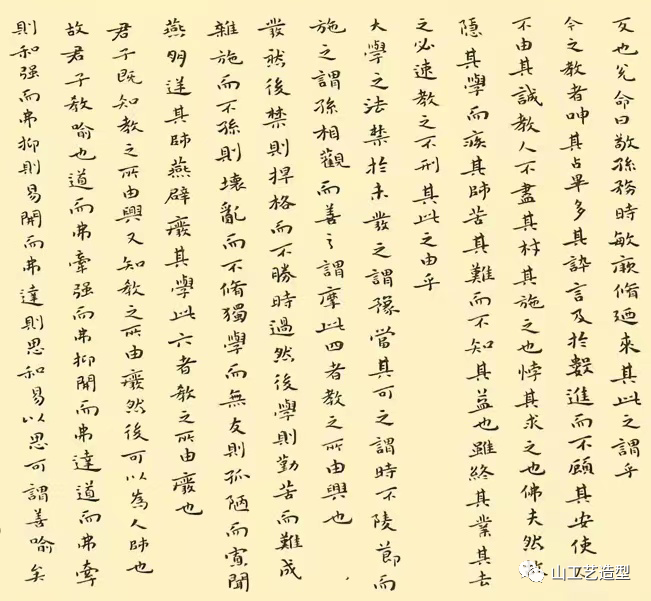 反也兌命曰敬孫務時敏厥脩廼來其此之謂乎
今之教者呻其占畢多其誶言及於數進而不顧其安使人
不由其誠教人不盡其材其施之也悖其求之也佛夫然
隱其學而疾其師苦其難而不知其益也雖終其業其去
之必速教之不刑其此之由乎
大學之法禁於未發之謂豫當其可之謂時不陵節而
施之謂孫相觀而善之謂摩此四者教之所由興也
發然後禁則捍格而不勝時過然後學則勤苦而難成
雜施而不孫則壞亂而不脩獨學而無友則孤陋而寡聞
燕朋逆其師燕辟廢其學此六者教之所由廢也
君子既知教之所由興又知教之所由廢然後可以為人師也
故君子教喻也道而弗牽强而弗抑開而弗達道而弗牽
則和强而弗抑則易開而弗達則思和易以思可謂善喻矣
山工艺造型